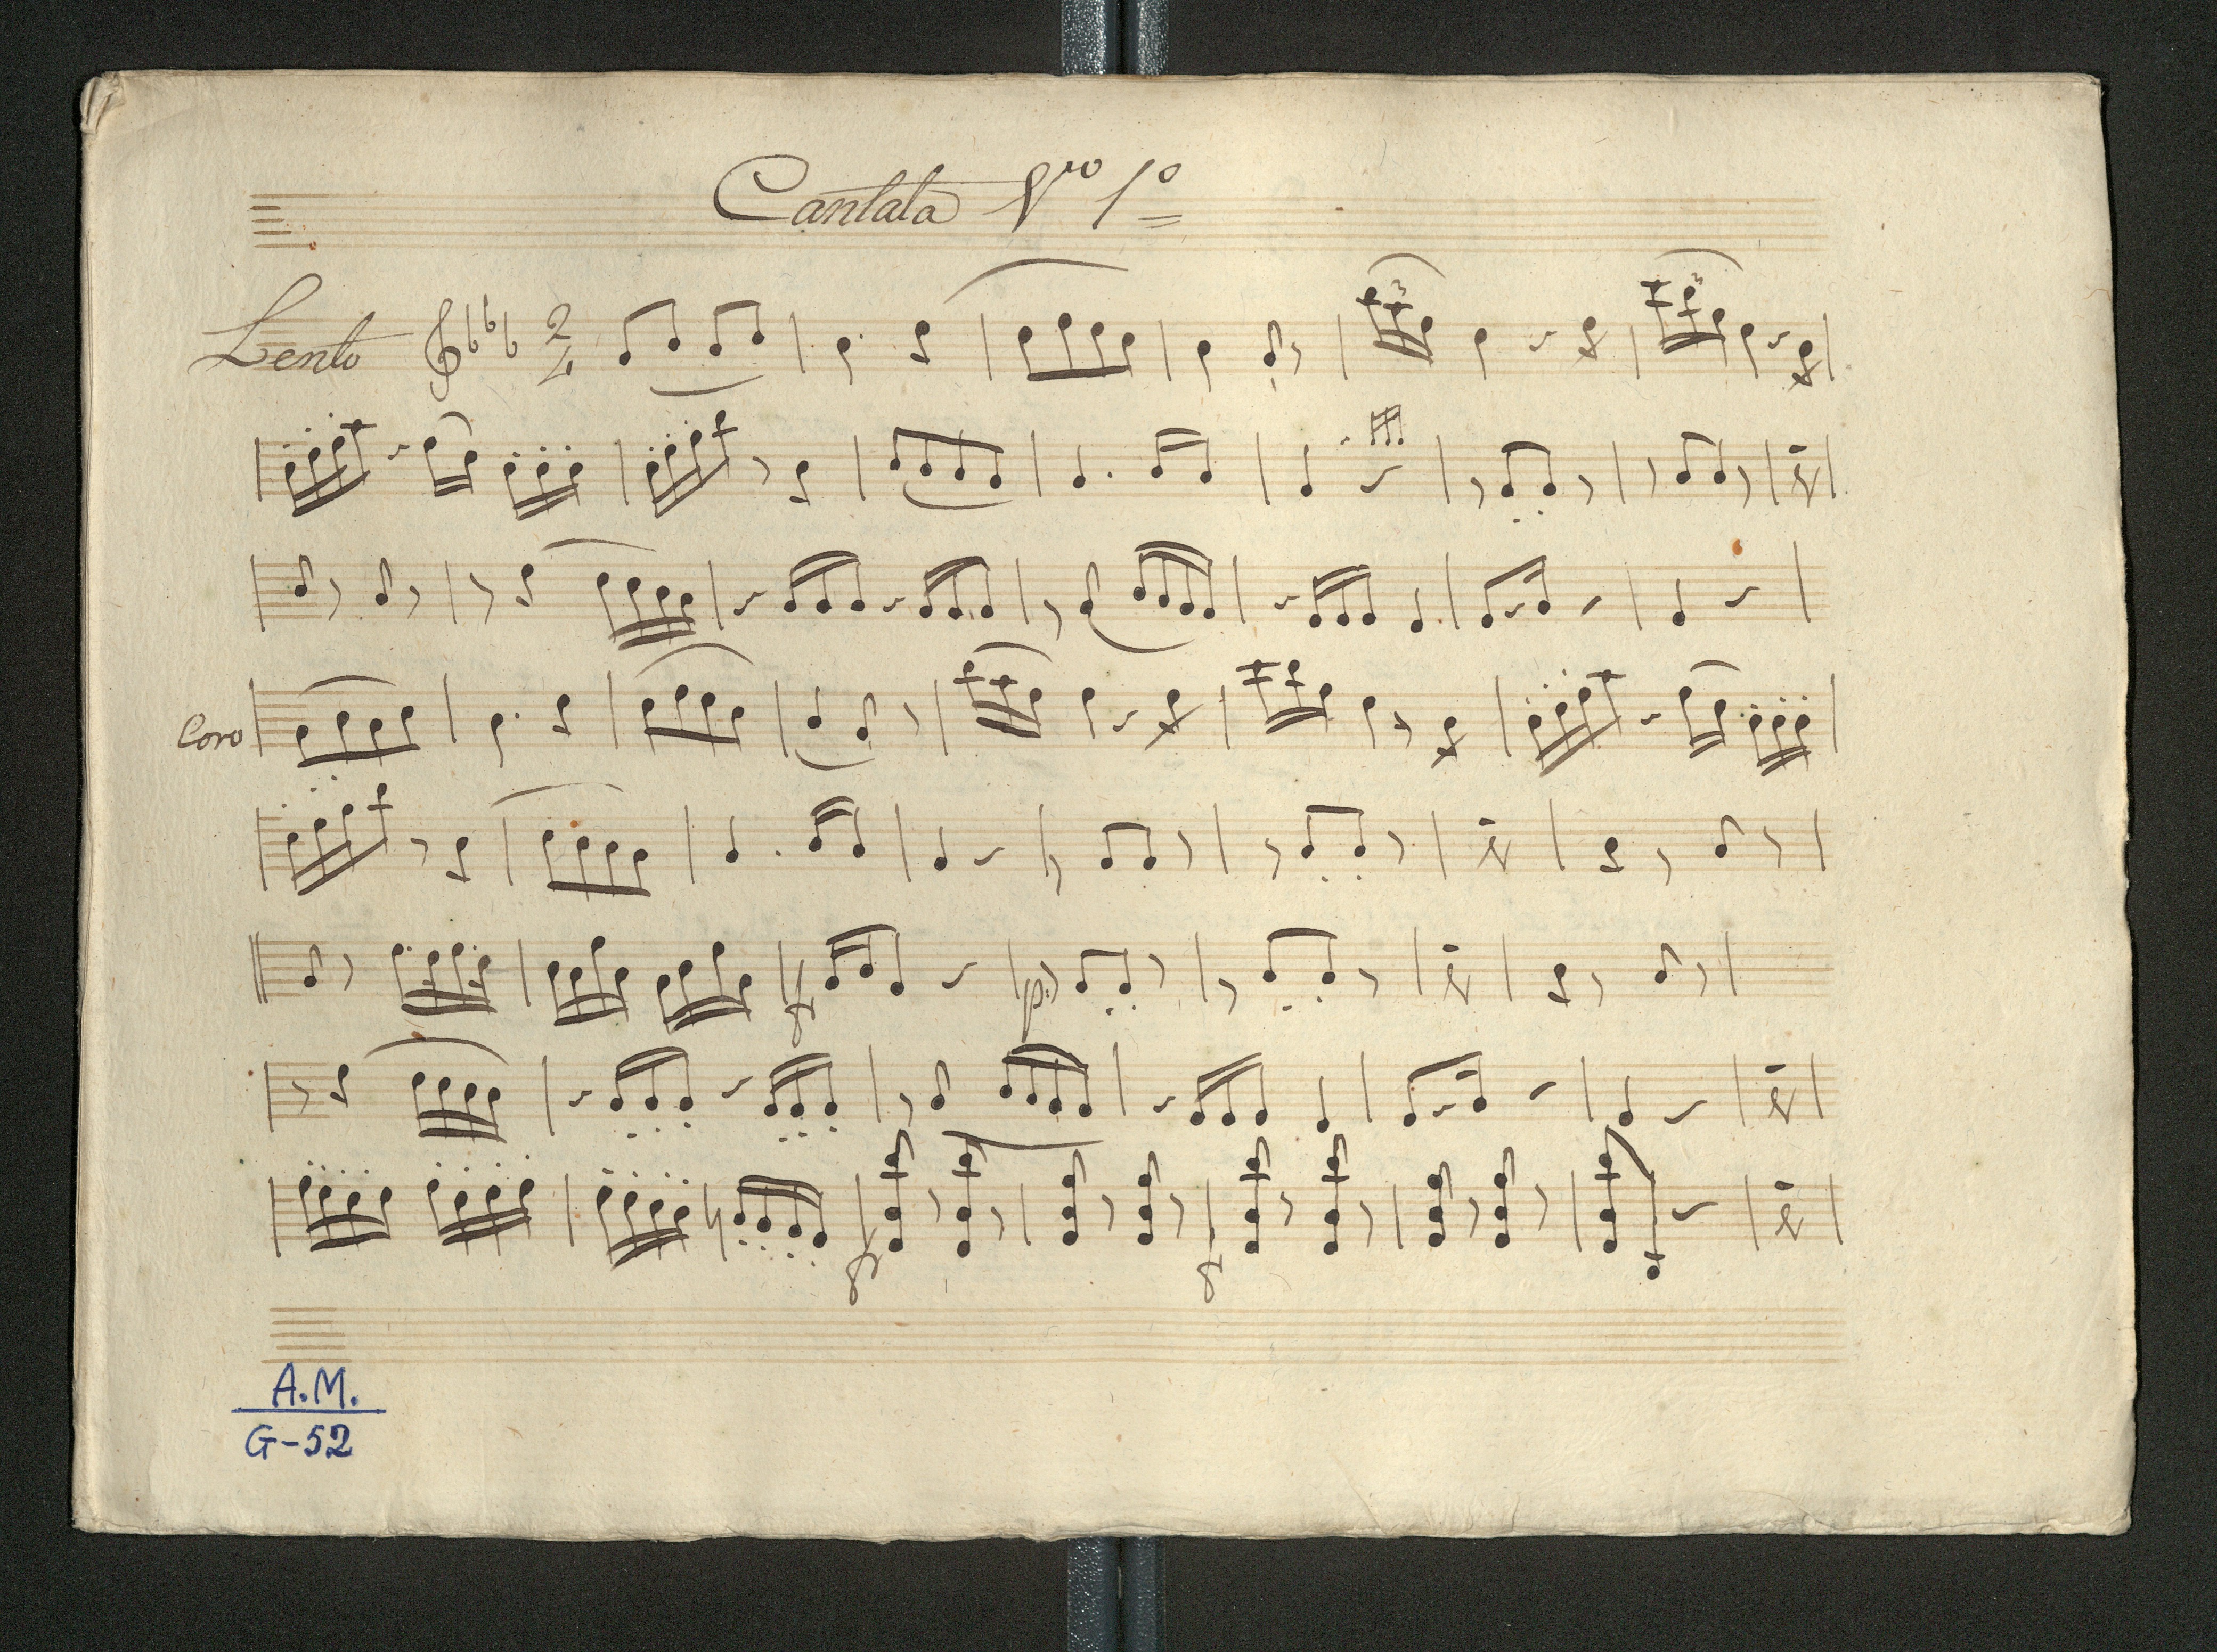 Cantata Vno 1o
Lento
2
4
3
3
Coro
f
p
f
f
A.M.
G-52